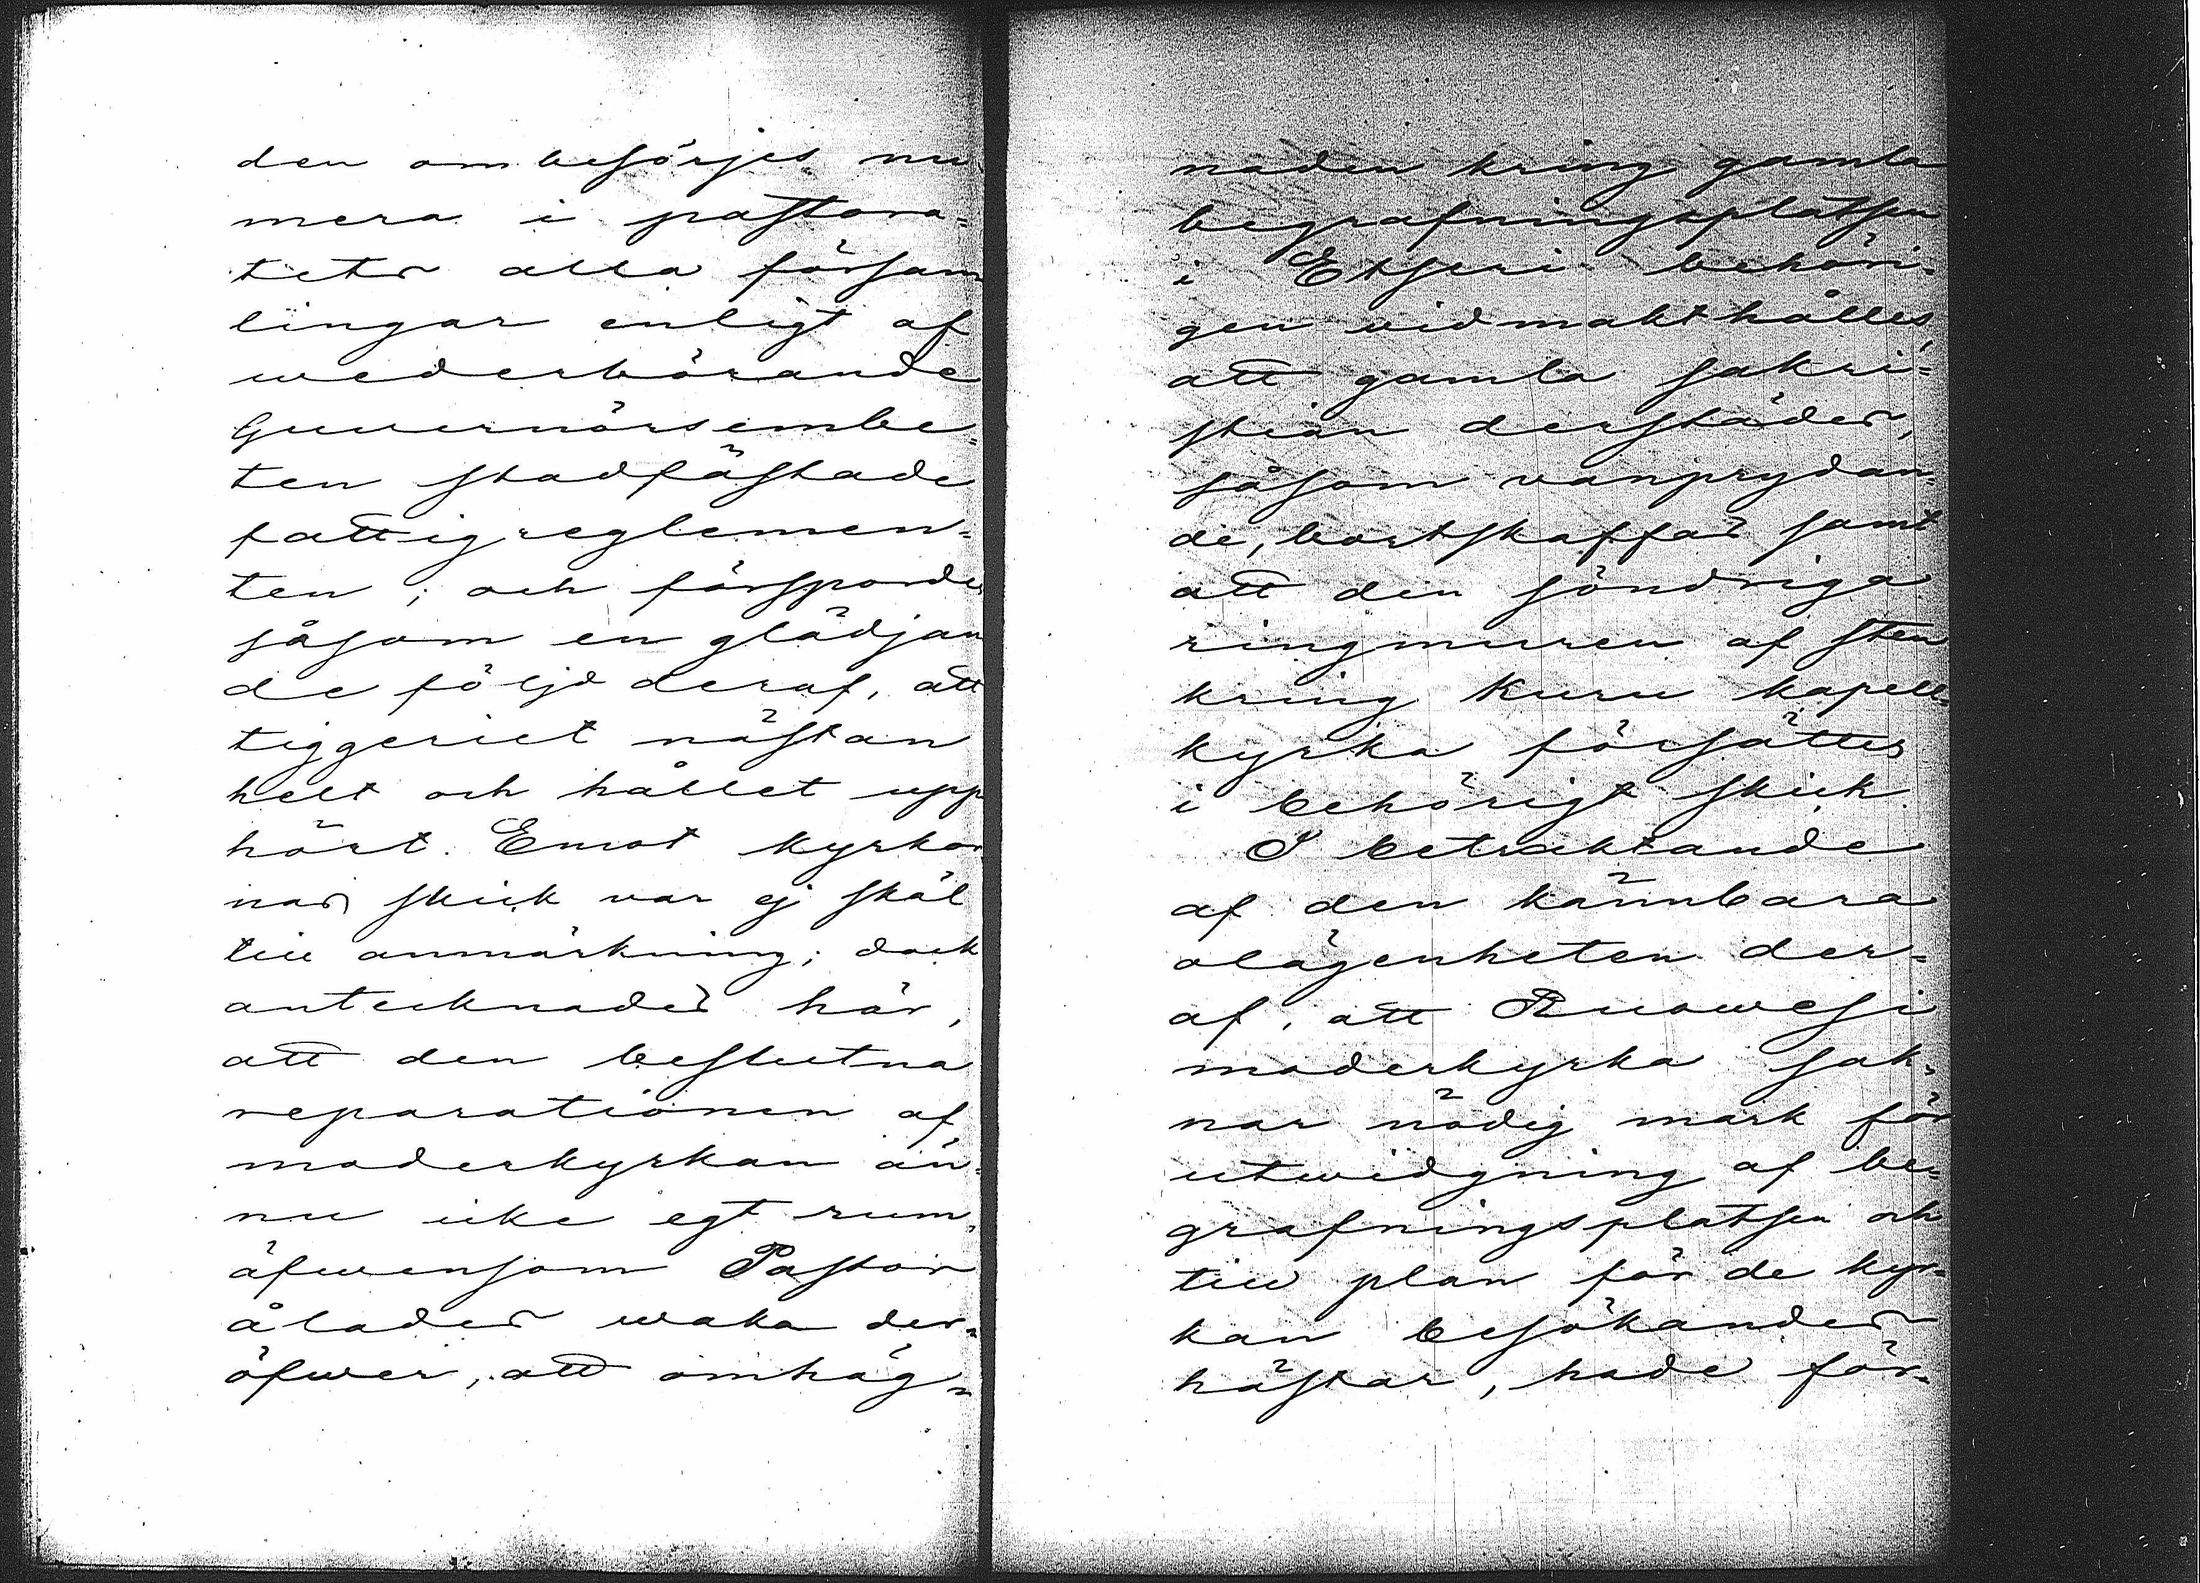 den ombesörjes nu
mera i pastora=
tets alla försam
lingar enligt af
wederbörande
Guvernörsembe=
ten stadfästade
fattigreglemen=
ten; och förspordes
såsom en glädjan
de följd deraf, att
tiggeriet nästan
helt och hållet upp
hört. Emot kyrkor
nas skick var ej skäl
till anmärkning; dock
antecknades här,
att den beslutna
reparationen af
moderkyrkan än=
nu icke egt rum,
äfwensom Pastor
ålades waka der=
öfwer, att omhäg=
naden kring gamla
begrafningsplatsen
i Etseri behöri=
gen vidmakthålles,
att gamla sakri=
stian derstädes,
såsom vanprydan=
de, bortskaffas samt
att den söndriga
ringmuren af sten
kring Kuru kapell=
kyrka försättes
i behörigt skick.
I betraktande
af den kännbara
olägenheten der=
af, att Ruowesi
moderkyrka sak=
nar nödig mark för
utwidgning af be=
grafningsplatsen och
till plan för de kyr=
kan besökandes
hästar, hade för=